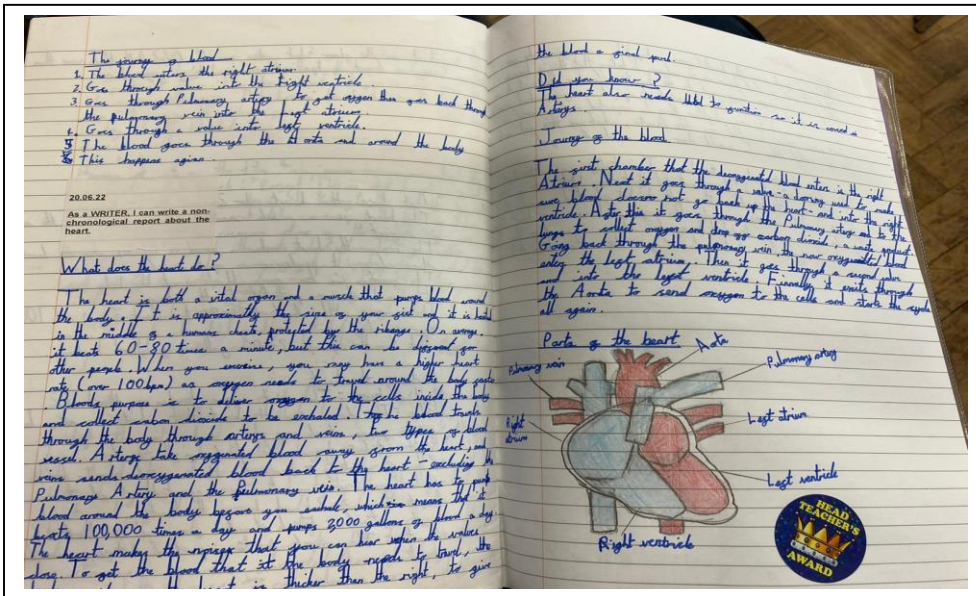 The journey of blood
1. The blood enters the right atrium.
2. Goes through valve into the right ventricle.
3. Goes through Pulmonary artery to get oxygen then goes back through
the pulmonary vein into the left atrium.
4. Goes through a valve into left ventricle.
5 The blood goes through the Aorta and around the body
6 This happens agian.
20.06.22
As a WRITER, I can write a non-
chronological report about the
heart.
What does the heart do?
The heart is both a vital organ and a muscle that pumps blood around
the body. It is approximately the size of your fist and it is
in the middle of a humans chest, protected by the ribcage. On average
it beats 60-80 times a minute, but this can be different for
other people. When you exercise, you may have a higher heart
rate (over 100bpm) as oxygen needs to travel around the body
Bloods purpose is to deliver oxygen to the cells inside the body
and collect carbon dioxide to be exhaled. The blood travels
through the body through arterys and veins, two types of blood
vessel. Arterys take oxygenated blood away from the heart, and
veins sends deoxygenated blood back to the heart - excluding the
Pulmonary Artery and the Pulmonary vein. The heart has to pump
blood around the body before you exhale, which means that it
beats 100,000 times a day and pumps 2000 gallons of blood a day.
The heart makes the noises that you can hear when the valves
close. To get the blood that it the body needs to travel, the
is thicker than the right, to give
the blood a final push.
Did you know?
The heart also needs blood to function so it is covered in
Arterys.
Journey of the blood
The first chamber that the deoxygenated blood enters is the right
Atrium. Next it goes through a valve - a doorway used to make
sure blood doesnt not go back up the heart - and into the right
ventricle. After this it goes through the Pulmonary artery and to the
lungs to collect oxygen and drop off carbon dioxide, a waste product.
Going back through the pulmonary vein, the now oxygenated blood
enters the left atrium. Then it goes through a second valve
and into the left ventricle. Finnally it exits through
the Aorta to send oxygen to the cells and start the cycle
all again.
Parts of the heart
Aorta
Pulmonary vein
Pulmonary artery
Right
atrium
Left atrium
Left ventricle
Right ventricle
HEAD
TEACHER'S
AWARD